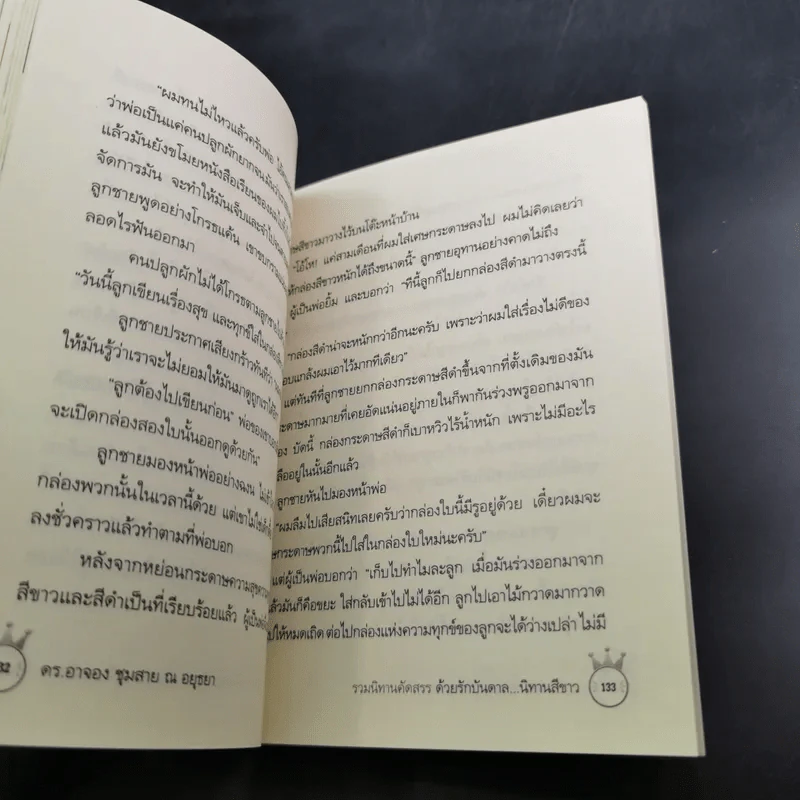 "ผมทนไม่ไหวแล้วครับพ่อ
ว่าพ่อเป็นแค่คนปลูกผักยากจนมัน
แล้วมันยังขโมยหนังสือเรียนของผม
จัดการมัน จะทำให้มันเจ็บและจำไป
ลูกชายพูดอย่างโกรธแค้น เขาขบกราม
ลอดไรฟันออกมา
คนปลูกผักไม่ได้โกรธตามลูกชาย
"วันนี้ลูกเขียนเรื่องสุข และทุกข์ใส่ในกล่อง
ลูกชายประกาศเสียงกร้าวทันทีว่า
ให้มันรู้ว่าเราจะไม่ยอมให้มันมาดูถูกเราได้
"ลูกต้องไปเขียนก่อน" พ่อของเขา
จะเปิดกล่องสองใบนั้นออกดูด้วยกัน"
ลูกชายมองหน้าพ่ออย่างฉงน
กล่องพวกนั้นในเวลานี้ด้วย แต่เขาไม่
ลงชั่วคราวแล้วทำตามที่พ่อบอก
หลังจากหย่อนกระดาษความสุข
สีขาวและสีดำเป็นที่เรียบร้อยแล้ว ผู้เป็น
32 ดร.อาจอง ชุมสาย ณ อยุธยา
าษสีขาวมาวางไว้บนโต๊ะหน้าบ้าน
"โอ้โห! แค่สามเดือนที่ผมใส่เศษกระดาษลงไป ผมไม่คิดเลยว่า
ห้กล่องสีขาวหนักได้ถึงขนาดนี้" ลูกชายอุทานอย่างคาดไม่ถึง
ผู้เป็นพ่อยิ้ม และบอกว่า "ทีนี้ลูกก็ไปยกกล่องสีดำมาวางตรงนี้
"กล่องสีดำน่าจะหนักกว่าอีกนะครับ เพราะว่าผมใส่เรื่องไม่ดีของ
อบแกล้งผมเอาไว้มากทีเดียว"
แต่ทันทีที่ลูกชายยกกล่องกระดาษสีดำขึ้นจากที่ตั้งเดิมของมัน
ะดาษมากมายที่เคยอัดแน่นอยู่ภายในก็พากันร่วงพรูออกมาจาก
อง บัดนี้ กล่องกระดาษสีดำก็เบาหวิวไร้น้ำหนัก เพราะไม่มีอะไร
ลืออยู่ในนั้นอีกแล้ว
ลูกชายหันไปมองหน้าพ่อ
"ผมลืมไปเสียสนิทเลยครับว่ากล่องใบนี้มีรูอยู่ด้วย เดี๋ยวผมจะ
ษกระดาษพวกนี้ไปใส่ในกล่องใบใหม่นะครับ"
แต่ผู้เป็นพ่อบอกว่า "เก็บไปทำไมละลูก เมื่อมันร่วงออกมาจาก
แล้วมันก็คือขยะ ใส่กลับเข้าไปไม่ได้อีก ลูกไปเอาไม้กวาดมากวาด
ปให้หมดเถิด ต่อไปกล่องแห่งความทุกข์ของลูกจะได้ว่างเปล่า ไม่มี
รวมนิทานคัดสรร ด้วยรักบันดาล...นิทานสีขาว 133